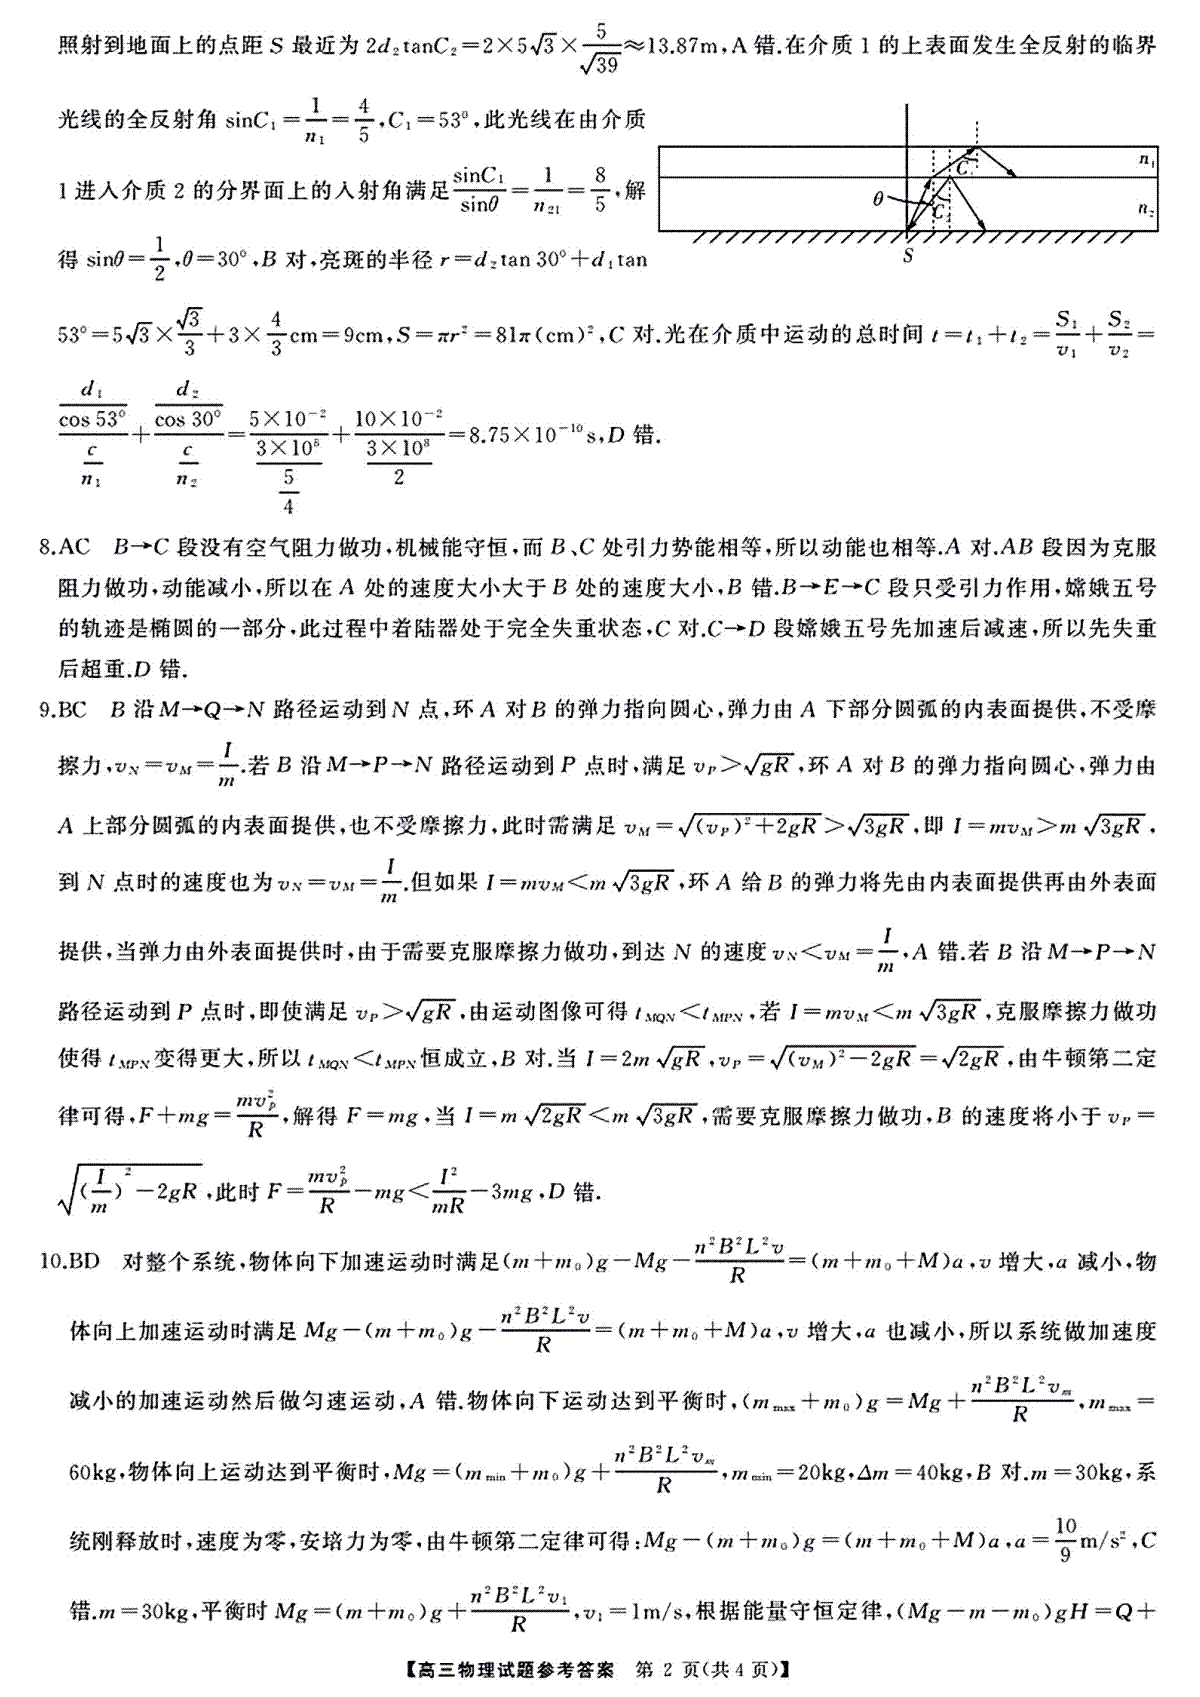 照射到地面上的点距 S 最近为 2d₂tanC₂=2×5√3×5/√39≈13.87m,A 错.在介质 1 的上表面发生全反射的临界
光线的全反射角 sinC₁=1/n₁=4/5,C₁=53°,此光线在由介质
1 进入介质 2 的分界面上的入射角满足 sinC₁/sinθ=1/n₂₁=8/5,解
得 sinθ=1/2,θ=30°,B 对,亮斑的半径 r=d₂tan 30°+d₁tan
n₁
C
θ
C
n₂
S
53°=5√3×√3/3+3×4/3cm=9cm,S=πr²=81π(cm)²,C 对.光在介质中运动的总时间 t=t₁+t₂=S₁/v₁+S₂/v₂=
(d₁/cos 53°)/(c/n₁)+(d₂/cos 30°)/(c/n₂)=(5×10⁻²)/(3×10⁸/(5/4))+(10×10⁻²)/(3×10⁸/2)=8.75×10⁻¹⁰s,D 错.
8.AC B→C 段没有空气阻力做功,机械能守恒,而 B、C 处引力势能相等,所以动能也相等.A 对.AB 段因为克服
阻力做功,动能减小,所以在 A 处的速度大小大于 B 处的速度大小,B 错.B→E→C 段只受引力作用,嫦娥五号
的轨迹是椭圆的一部分,此过程中着陆器处于完全失重状态,C 对.C→D 段嫦娥五号先加速后减速,所以先失重
后超重.D 错.
9.BC B 沿 M→Q→N 路径运动到 N 点,环 A 对 B 的弹力指向圆心,弹力由 A 下部分圆弧的内表面提供,不受摩
擦力,v_N=v_M=I/m.若 B 沿 M→P→N 路径运动到 P 点时,满足 v_P>√gR,环 A 对 B 的弹力指向圆心,弹力由
A 上部分圆弧的内表面提供,也不受摩擦力,此时需满足 v_M=√((v_P)²+2gR)>√3gR,即 I=mv_M>m√3gR,
到 N 点时的速度也为 v_N=v_M=I/m.但如果 I=mv_M<m√3gR,环 A 给 B 的弹力将先由内表面提供再由外表面
提供,当弹力由外表面提供时,由于需要克服摩擦力做功,到达 N 的速度 v_N<v_M=I/m,A 错.若 B 沿 M→P→N
路径运动到 P 点时,即使满足 v_P>√gR,由运动图像可得 t_MQN<t_MPN,若 I=mv_M<m√3gR,克服摩擦力做功
使得 t_MPN变得更大,所以 t_MQN<t_MPN恒成立,B 对.当 I=2m√gR,v_P=√((v_M)²-2gR)=√2gR,由牛顿第二定
律可得,F+mg=mv_P²/R,解得 F=mg,当 I=m√2gR<m√3gR,需要克服摩擦力做功,B 的速度将小于 v_P=
√((I/m)²-2gR),此时 F=mv_P²/R-mg<I²/mR-3mg,D 错.
10.BD 对整个系统,物体向下加速运动时满足(m+m₀)g-Mg-n²B²L²v/R=(m+m₀+M)a,v 增大,a 减小,物
体向上加速运动时满足 Mg-(m+m₀)g-n²B²L²v/R=(m+m₀+M)a,v 增大,a 也减小,所以系统做加速度
减小的加速运动然后做匀速运动,A 错.物体向下运动达到平衡时,(m_max+m₀)g=Mg+n²B²L²v_m/R,m_max=
60kg,物体向上运动达到平衡时,Mg=(m_min+m₀)g+n²B²L²v_m/R,m_min=20kg,Δm=40kg,B 对.m=30kg,系
统刚释放时,速度为零,安培力为零,由牛顿第二定律可得:Mg-(m+m₀)g=(m+m₀+M)a,a=10/9m/s²,C
错.m=30kg,平衡时 Mg=(m+m₀)g+n²B²L²v₁/R,v₁=1m/s,根据能量守恒定律,(Mg-m-m₀)gH=Q+
【高三物理试题参考答案 第 2 页(共 4 页)】